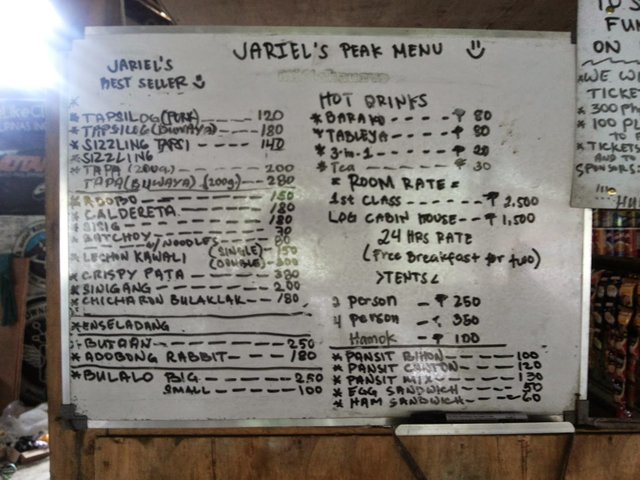 JARIEL'S PEAK MENU
JARIEL'S
BEST SELLER
* TAPSILOG (PORK) 120
* TAPSILOG (BUWAYA) 180
* SIZZLING TAPSI 140
* SIZZLING
* TAPA (200g) 200
TAPA (BUWAYA) (200g) 280
* ADOBO 150
* CALDERETA 180
* SISIG 180
* BATCHOY 70
W/ NOODLES 80
* LECHON KAWALI (SINGLE) 150
(DOUBLE) 300
* CRISPY PATA 380
* SINIGANG 200
* CHICHARON BULAKLAK 180
* ENSELADANG
* BUTAAN 250
* ADOBONG RABBIT 180
* BULALO BIG 250
SMALL 100
HOT DRINKS
* BARAKO ₱ 80
* TABLEYA ₱ 80
* 3-in-1 ₱ 20
* Tea ₱ 30
= ROOM RATE =
1st CLASS ₱ 2,500
LOG CABIN HOUSE ₱ 1,500
24 HRS RATE
(Free Breakfast for two)
>TENTS<
person ₱ 250
4 person 350
Hamok ₱ 100
* PANSIT BIHON 100
* PANSIT CANTON 120
* PANSIT MIX 130
* EGG SANDWICH 50
* HAM SANDWICH 60
TO S
FU
ON
* WE W
TICKET
* 300 Ph
* 100 PL
* TICKETS
AND TO
SPONSORS: